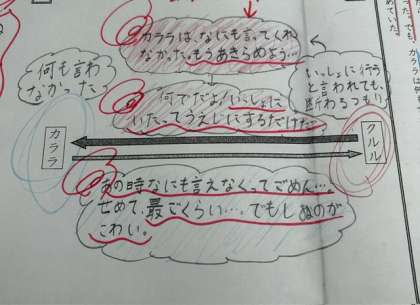 カララは、なにも言ってくれ
なかった。もうあきらめよう…
何も言わ
なかった
いっしょに行こう
と言われても、
断わるつもり
何でだよ!いっしょに
いたってうえじにするだけだ…
カララ
クルル
あの時なにも言えなくってごめん…。
せめて、最ごくらい…。でもしぬのが
こわい。